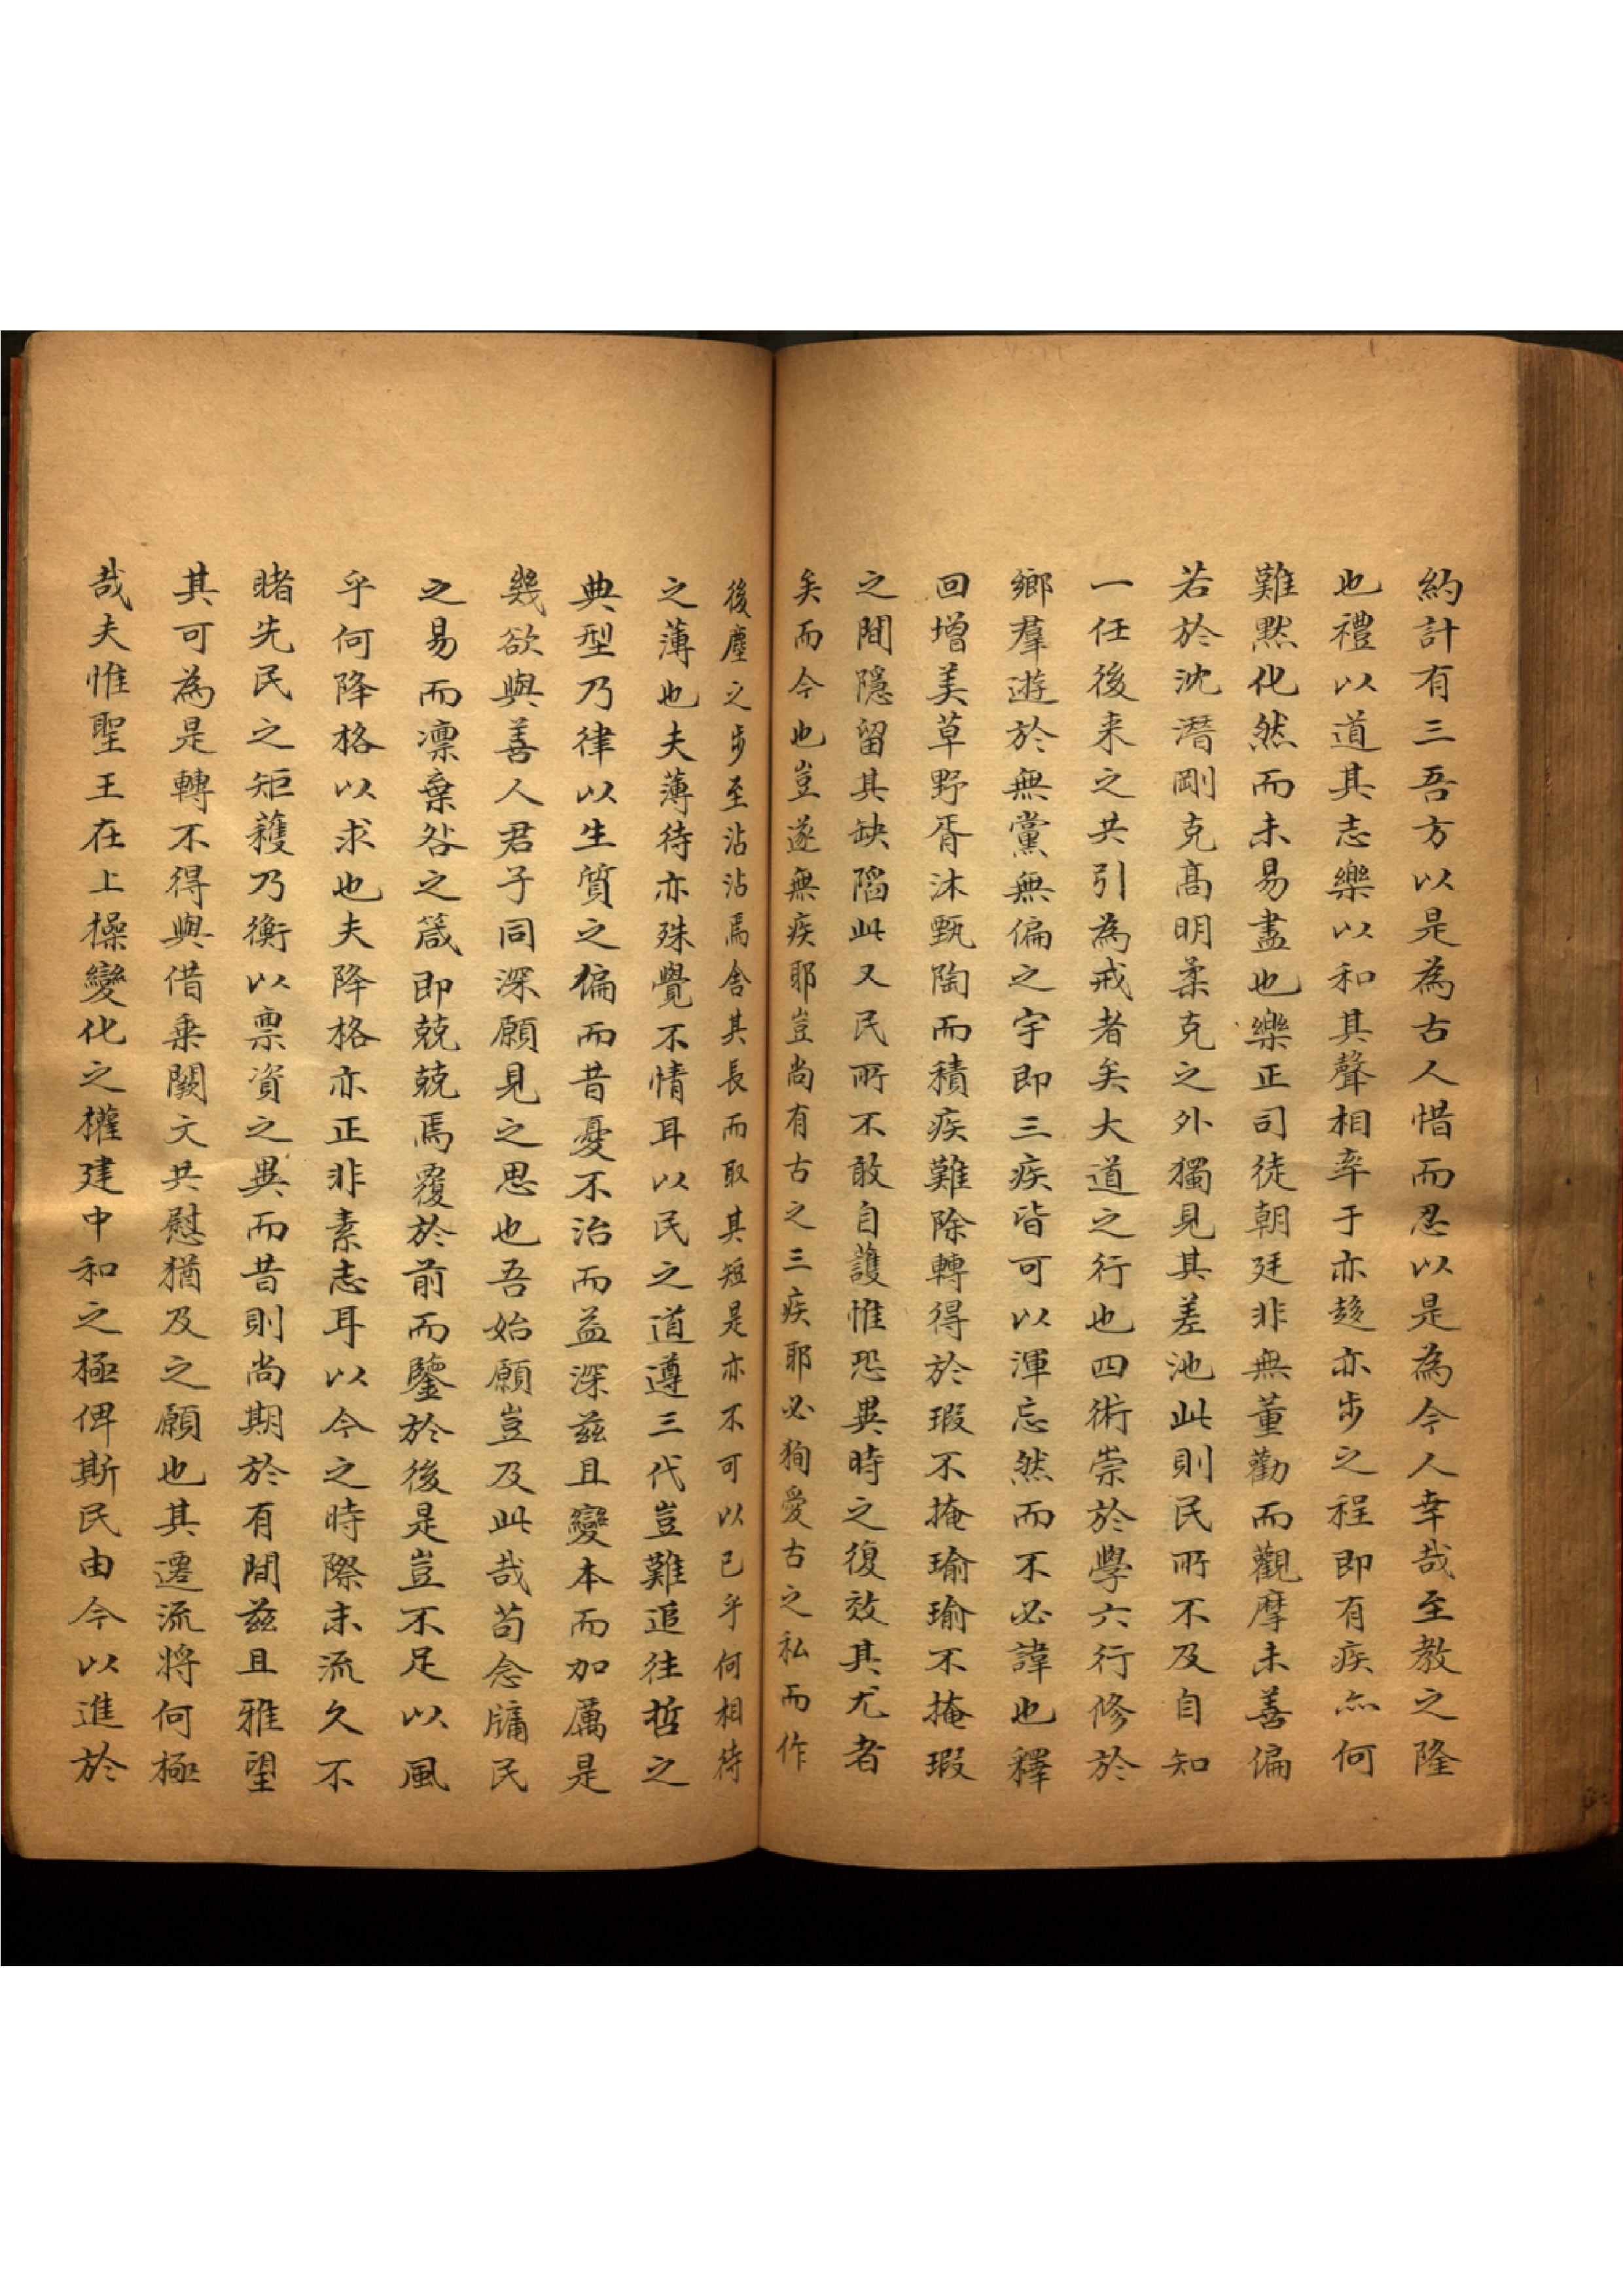 約計有三吾方以是為古人惜而忍以是為今人幸哉至教之隆
也禮以道其志樂以和其聲相率于亦趍亦步之程即有疾亦何
難黙化然而未易盡也樂正司徒朝廷非無董勸而觀摩未善偏
若於沈潛剛克高明柔克之外獨見其差池此則民所不及自知
一任後来之共引為戒者矣大道之行也四術崇於學六行修於
鄉羣遊於無黨無偏之宇即三疾皆可以渾忘然而不必諱也釋
回增美草野胥沐甄陶而積疾難除轉得於瑕不掩瑜瑜不掩瑕
之間隱留其缺陷此又民所不敢自護惟恐異時之復效其尤者
矣而今也豈遂無疾耶豈尚有古之三疾耶必狥愛古之私而作
後塵之步至沾沾焉舍其長而取其短是亦不可以已乎何相待
之薄也夫薄待亦殊覺不情耳以民之道遵三代豈難追往哲之
典型乃律以生質之偏而昔憂不治而益深茲且變本而加厲是
幾欲與善人君子同深願見之思也吾始願豈及此哉苟念牖民
之易而凛棄咎之箴即兢兢焉覆於前而鑒於後是豈不足以風
乎何降格以求也夫降格亦正非素志耳以今之時際末流久不
睹先民之矩矱乃衡以禀資之異而昔則尚期於有間茲且雅望
其可為是轉不得與借乗闕文共慰猶及之願也其遷流將何極
哉夫惟聖王在上操變化之權建中和之極俾斯民由今以進於